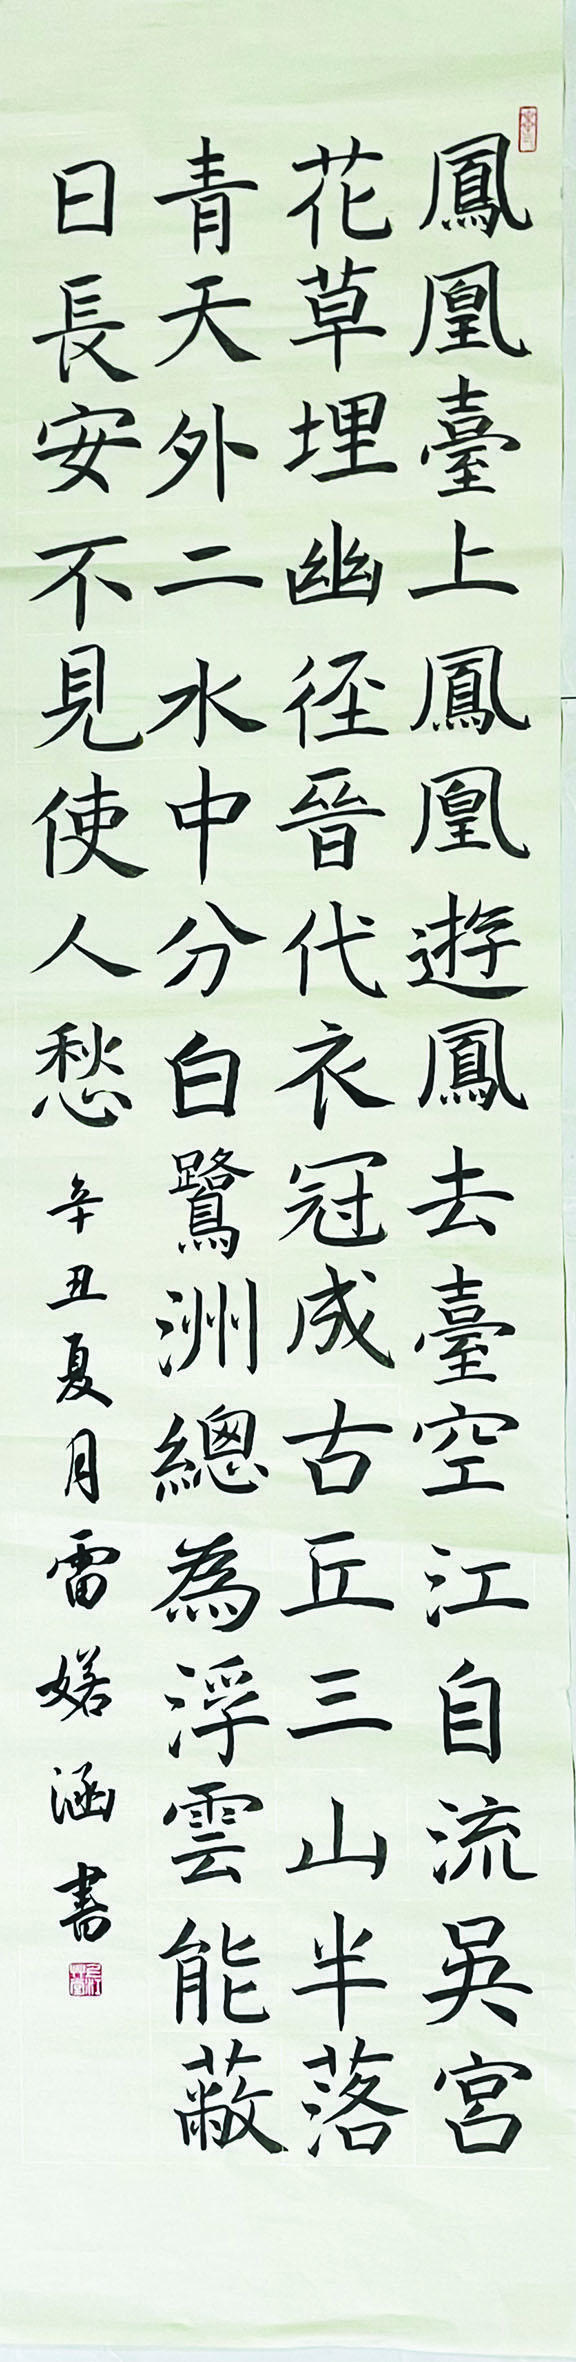 鳳凰臺上鳳凰遊鳳去臺空江自流吳宮
花草埋幽徑晉代衣冠成古丘三山半落
青天外二水中分白鷺洲總為浮雲能蔽
日長安不見使人愁辛丑夏月雷婼涵書